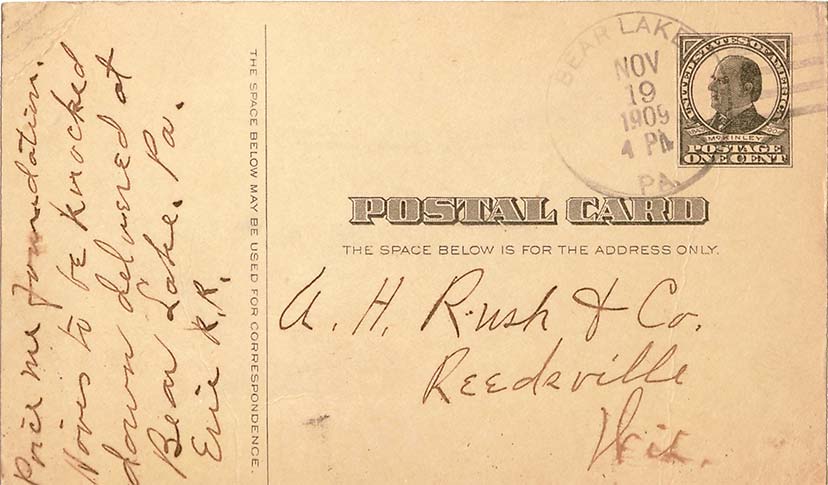 Price me foundation.
Hives to be knocked
down delivered at
Bear Lake. Pa.
Erie R.R.
THE SPACE BELOW MAY BE USED FOR CORRESPONDENCE.
BEAR LAKE
NOV
19
1909
4 PM
PA.
UNITED STATES OF AMERICA
McKINLEY
POSTAGE
ONE CENT
POSTAL CARD
THE SPACE BELOW IS FOR THE ADDRESS ONLY.
A. H. Rush & Co.
Reedsville
Wis.